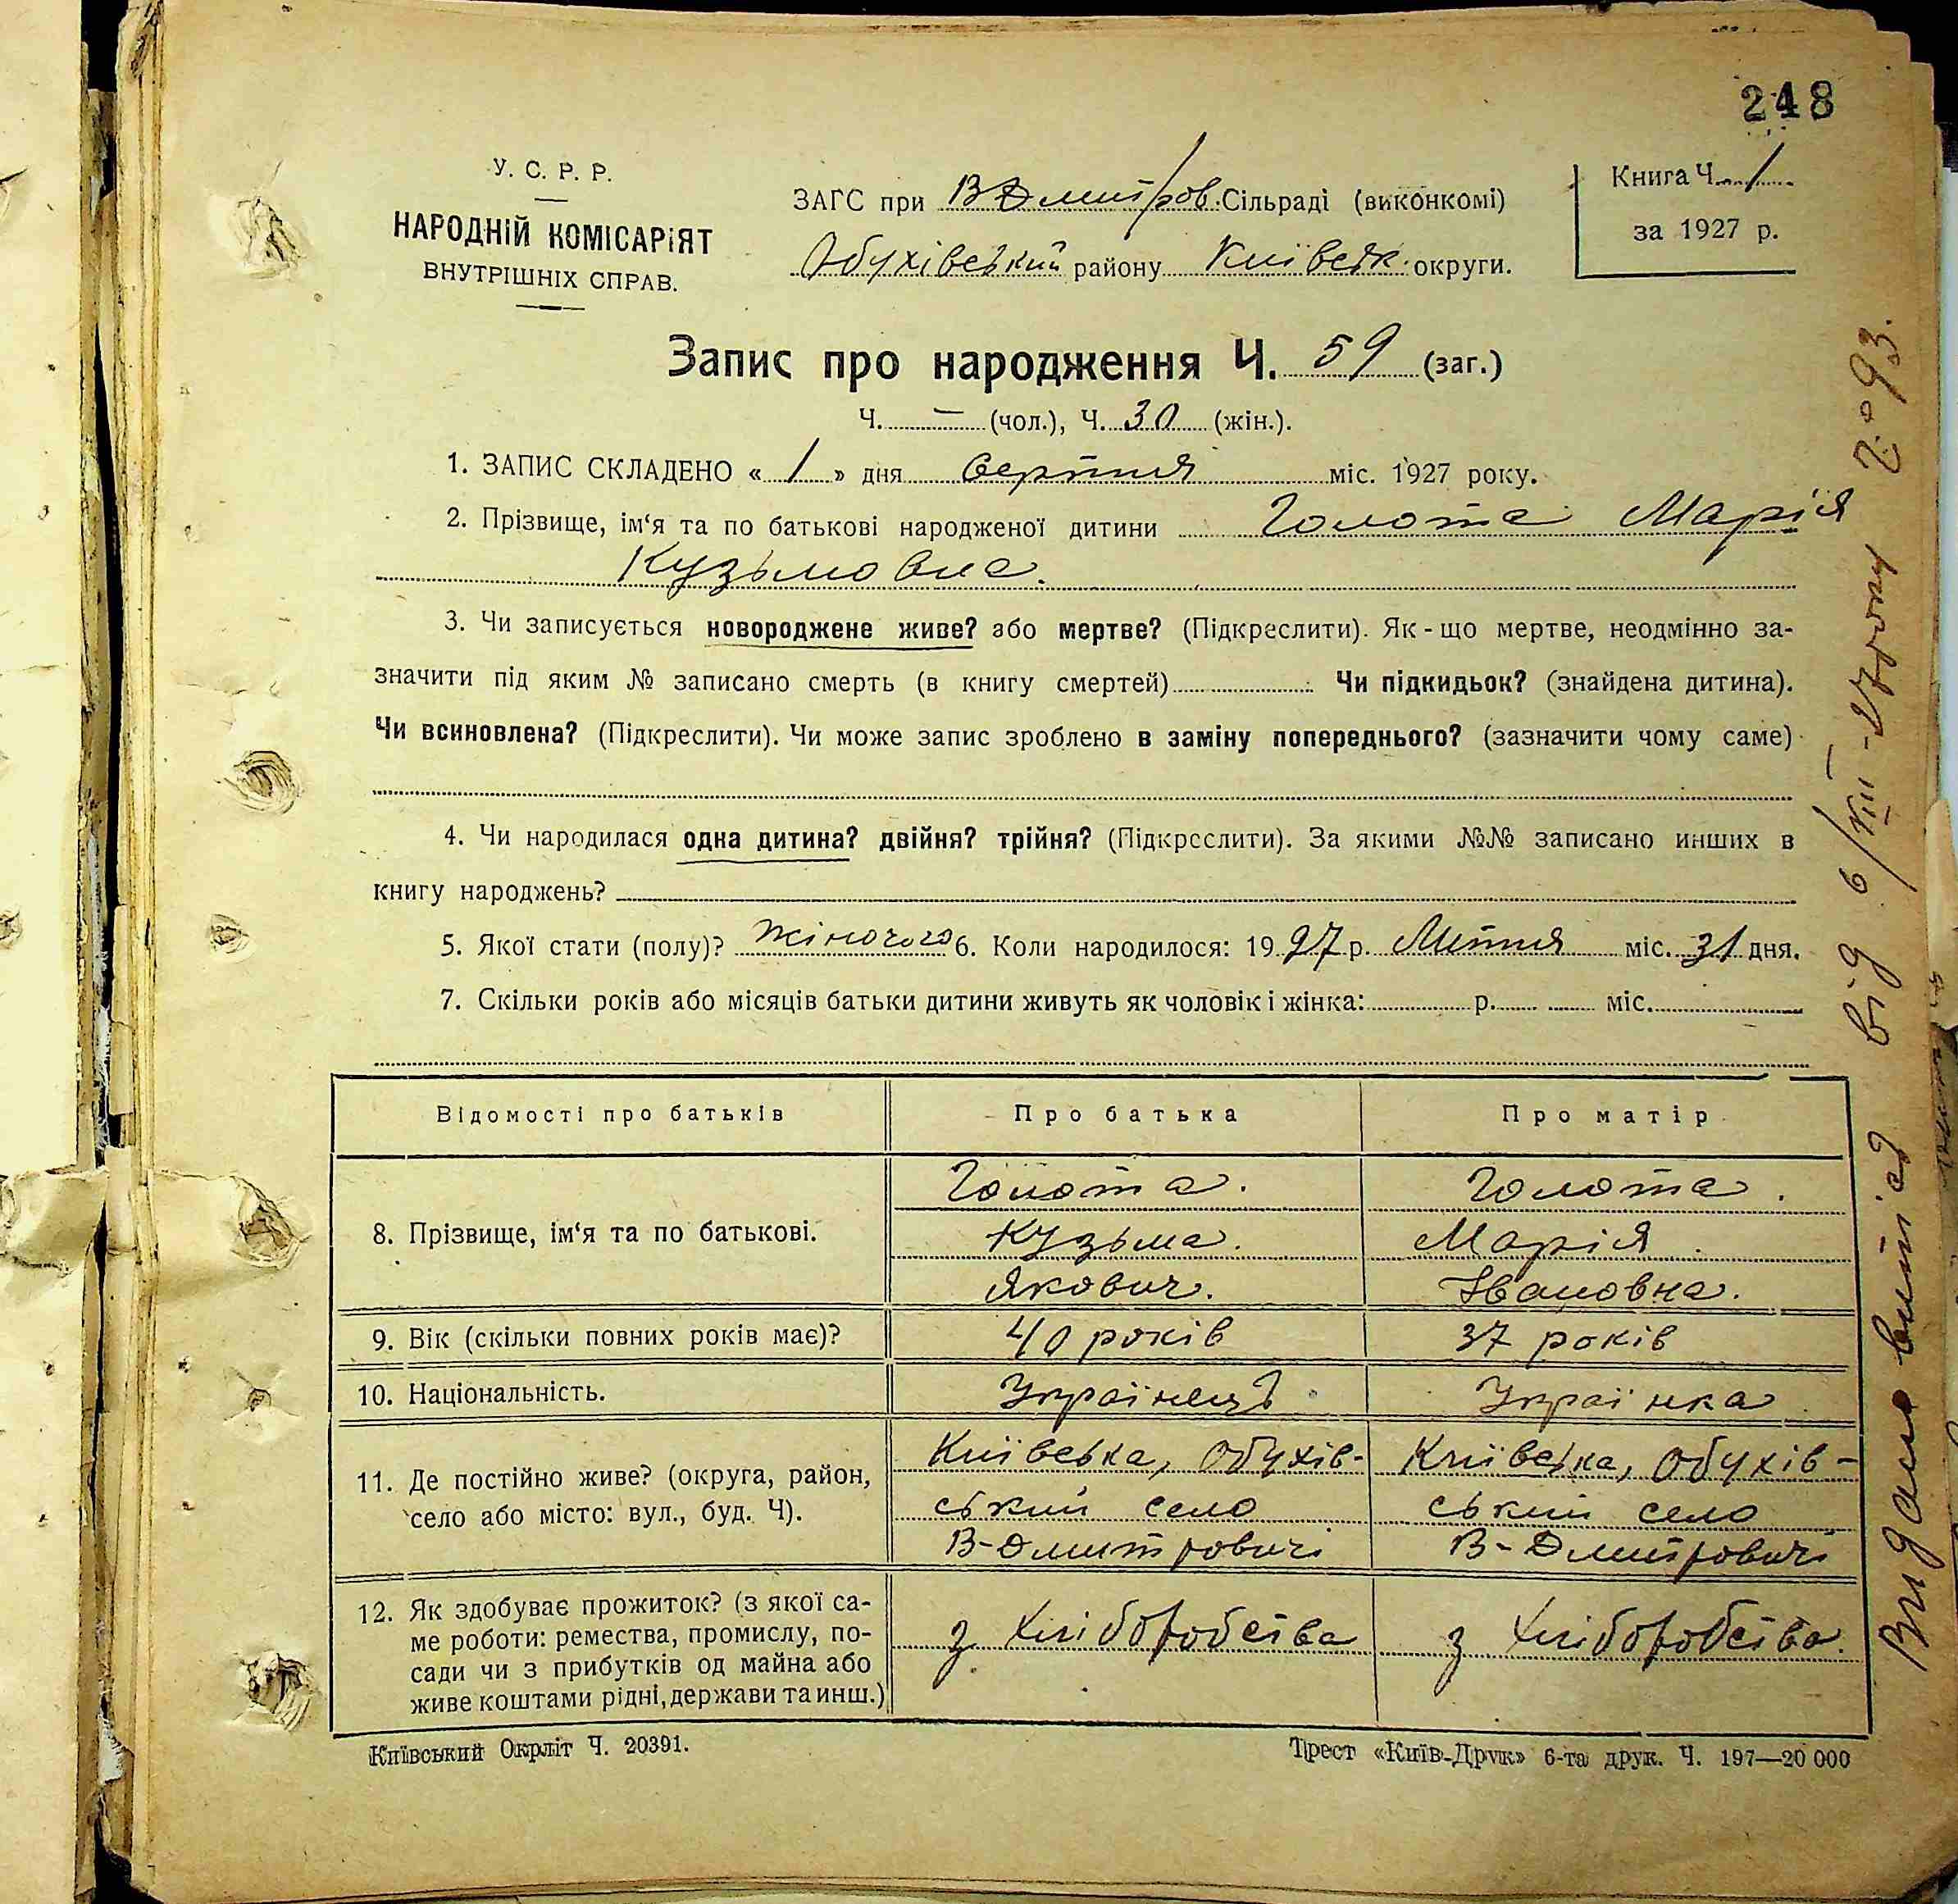 248
У. С. Р. Р.
НАРОДНІЙ КОМІСАРІЯТ
ВНУТРІШНІХ СПРАВ.
ЗАГС при В Дмитров. Сільраді (виконкомі)
Обухівський району Київськ. округи.
Книга Ч. 1
за 1927 р.
Запис про народження Ч. 59 (заг.)
Ч. — (чол.), Ч. 30 (жін.).
1. ЗАПИС СКЛАДЕНО « 1 » дня Серпня міс. 1927 року.
2. Прізвище, ім‘я та по батькові народженої дитини Голота Марія
Кузьмовна.
3. Чи записується новороджене живе? або мертве? (Підкреслити). Як-що мертве, неодмінно за-
значити під яким № записано смерть (в книгу смертей) Чи підкидьок? (знайдена дитина).
Чи всиновлена? (Підкреслити). Чи може запис зроблено в заміну попереднього? (зазначити чому саме)
4. Чи народилася одна дитина? двійня? трійня? (Підкреслити). За якими №№ записано инших в
книгу народжень?
5. Якої стати (полу)? Жіночого 6. Коли народилося: 1927 р. Липня міс. 31 дня.
7. Скільки років або місяців батьки дитини живуть як чоловік і жінка: р. міс.
Відомості про батьків Про батька Про матір
8. Прізвище, ім‘я та по батькові.
Голота. Голота.
Кузьма. Марія.
Якович. Івановна.
9. Вік (скільки повних років має)? 40 років 37 років
10. Національність. Українець Українка
11. Де постійно живе? (округа, район,
село або місто: вул., буд. Ч).
Київська, Обухів- Київська, Обухів-
ський село ський село
В-Дмитровичі В-Дмитровичі
12. Як здобуває прожиток? (з якої са-
ме роботи: ремества, промислу, по-
сади чи з прибутків од майна або
живе коштами рідні, держави та инш.)
з хліборобства з хліборобства.
Київський Окрліт Ч. 20391.
Трест «Київ-Друк» 6-та друк. Ч. 197—20 000
Видано витяг від 6/XII